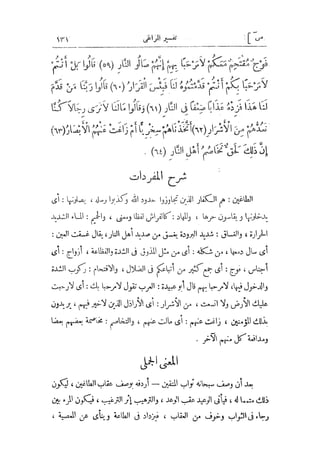 ص ] تفسير المراغى ١٣١
فَوْجٌ مُقْتَحِمٌ مَعَكُمْ لَا مَرْحَبًا بِهِمْ إِنَّهُمْ صَالُو النَّارِ (٥٩) قَالُوا بَلْ أَنْتُمْ
لَا مَرْحَبًا بِكُمْ أَنْتُمْ قَدَّمْتُمُوهُ لَنَا فَبِئْسَ الْقَرَارُ (٦٠) قَالُوا رَبَّنَا مَنْ قَدَّمَ
لَنَا هَذَا فَزِدْهُ عَذَابًا ضِعْفًا فِى النَّارِ (٦١) وَقَالُوا مَا لَنَا لَا نَرَى رِجَالًا كُنَّا
نَعُدُّهُمْ مِنَ الْأَشْرَارِ (٦٢) أَتَّخَذْنَاهُمْ سِخْرِيًّا أَمْ زَاغَتْ عَنْهُمُ الْأَبْصَارُ (٦٣)
إِنَّ ذَلِكَ لَحَقٌّ تَخَاصُمُ أَهْلِ النَّارِ (٦٤) .
شرح المفردات
الطاغين : هم الكفار الذين تجاوزوا حدود الله وكذبوا رسله ، يصلونها : أى
يدخلونها ويقاسون حرها ، والمهاد : كالفراش لفظا ومعنى ، والحميم الماء الشديد
الحرارة ، والغساق : شديد البرودة يغسق من صديد أهل النار، يقال غسقت العين :
أى سال دمعها ، من شكله : أى من مثل المذوق فى الشدة والفظاعة ، أزواج : أى
أجناس ، فوج : أى جمع كثير من أتباعكم فى الضلال ، والاقتحام : ركوب الشدة
والدخول فيها، لا مرحبا بهم قال أبو عبيدة : العرب تقول لا مرحبا بك : أى لا رحبت
عليك الأرض ولا اتسعت ، من الأشرار : أى الأراذل الذين لا خير فيهم ، يريدون
بذلك المؤمنين ، زاغت عنهم : أى مالت عنهم ، والتخاصم : مخاصمة بعضهم بعضا
ومدافعة كل منهم الآخر .
المعنى الجملى
بعد أن وصف سبحانه ثواب المتقين – أردفه بوصف عقاب الطاغين ، ليكون
ذلك متمما له ، فيأتى الوعيد عقب الوعد ، والترهيب إثر الترغيب ، فيكون المرء بين
رجاء فى الثواب وخوف من العقاب ، فيزداد فى الطاعة وينأى عن المعصية ،